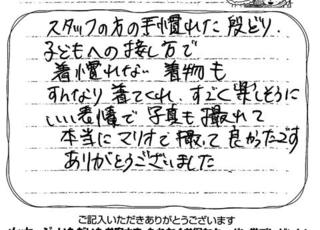 スタッフの方の手慣れた段どり、
子どもへの接し方で
着慣れない着物も
すんなり着てくれ、すごく楽しそうに
いい表情で写真も撮れて
本当にマリオで撮って良かったです
ありがとうございました
ご記入いただきありがとうございます